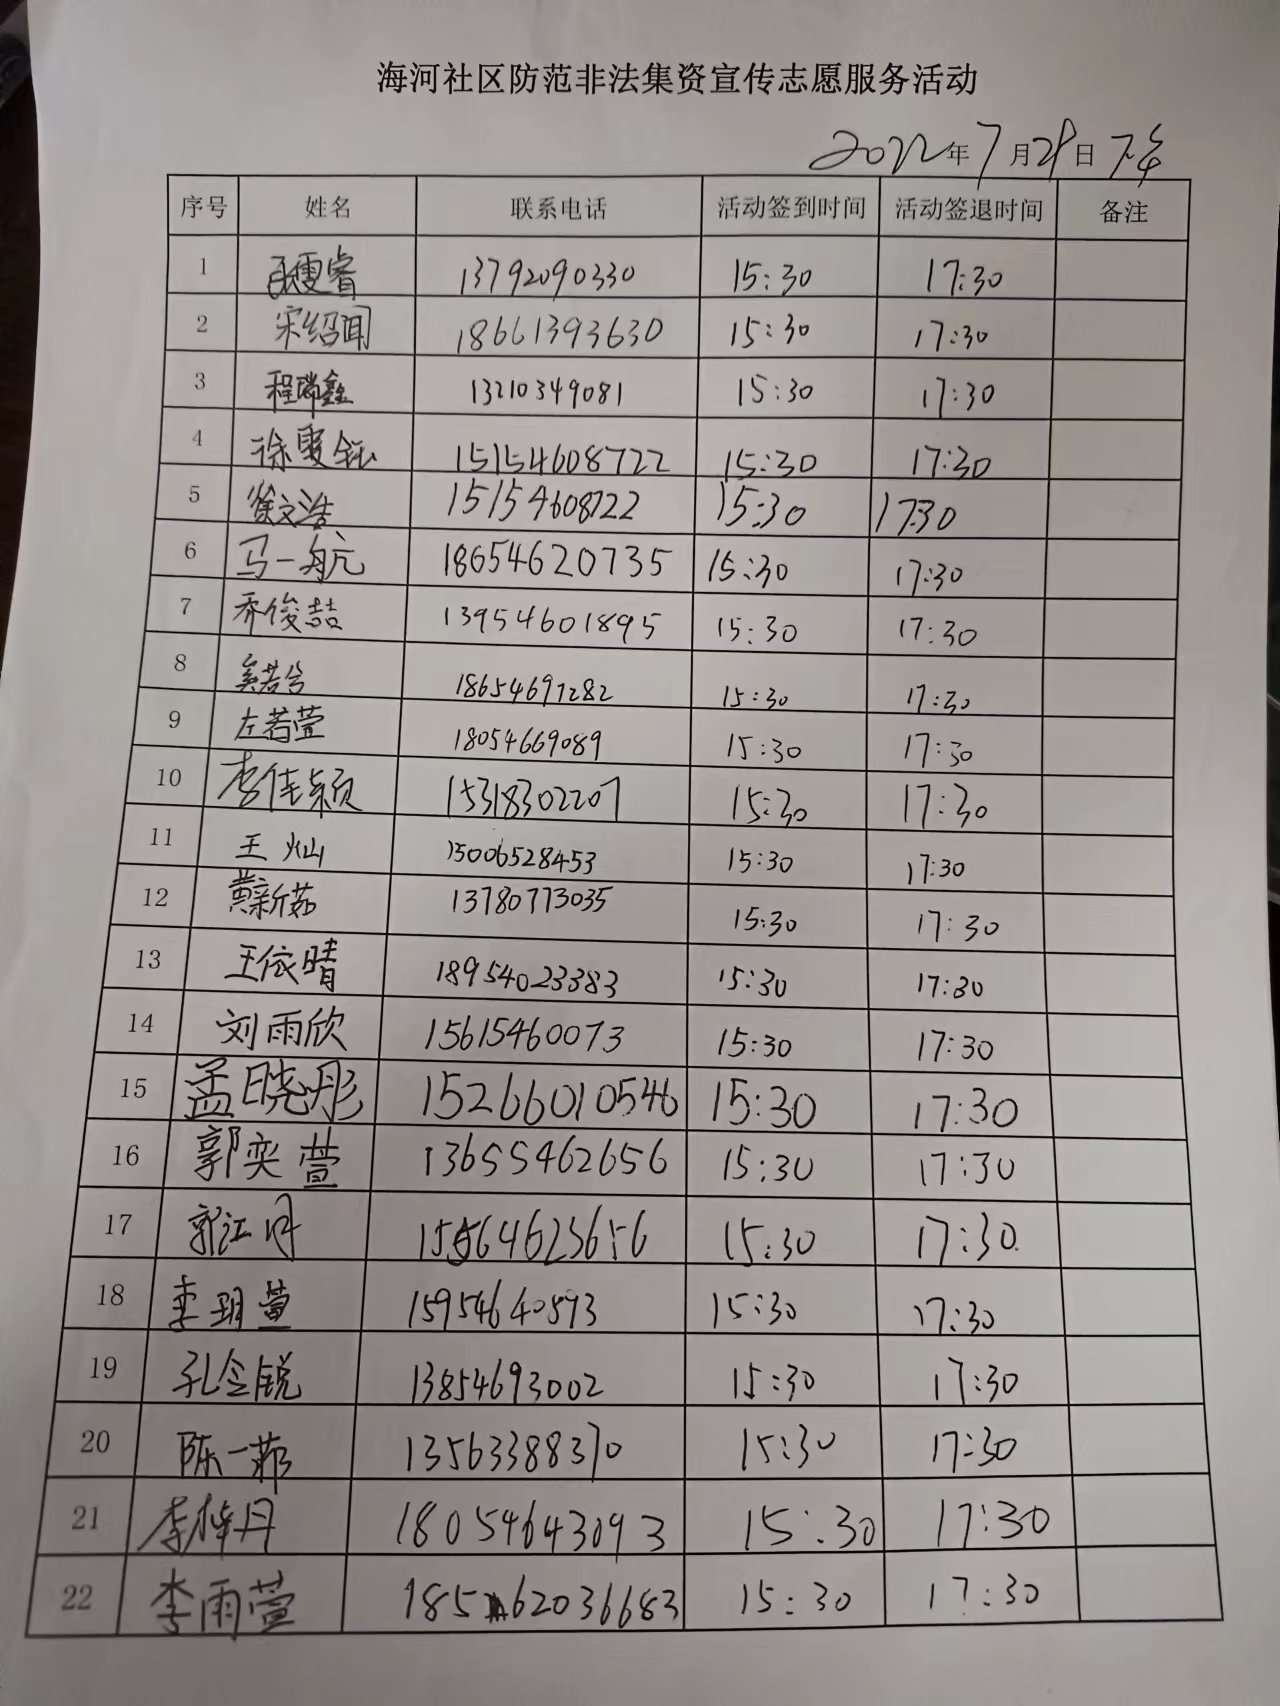 海河社区防范非法集资宣传志愿服务活动
2022年7月29日 下午
序号 姓名 联系电话 活动签到时间 活动签退时间 备注
1 13792090330 15:30 17:30
2 宋绍闻 18661393630 15:30 17:30
3 程瑞鑫 13210349081 15:30 17:30
4 徐雯钰 15154608722 15:30 17:30
5 徐文浩 15154608722 15:30 17:30
6 马一航 18654620735 15:30 17:30
7 乔俊喆 13954601895 15:30 17:30
8 奚若兮 18654697282 15:30 17:30
9 左若萱 18054669089 15:30 17:30
10 李佳颖 15318302207 15:30 17:30
11 王灿 15006528453 15:30 17:30
12 黄新茹 13780773035 15:30 17:30
13 王依晴 18954023383 15:30 17:30
14 刘雨欣 15615460073 15:30 17:30
15 孟晓彤 15266010546 15:30 17:30
16 郭奕萱 13655462656 15:30 17:30
17 郭江月 15564623656 15:30 17:30
18 李玥萱 15954640593 15:30 17:30
19 孔令锐 13854693002 15:30 17:30
20 陈一菲 13563388370 15:30 17:30
21 李梓丹 18054643093 15:30 17:30
22 李雨萱 18562036683 15:30 17:30